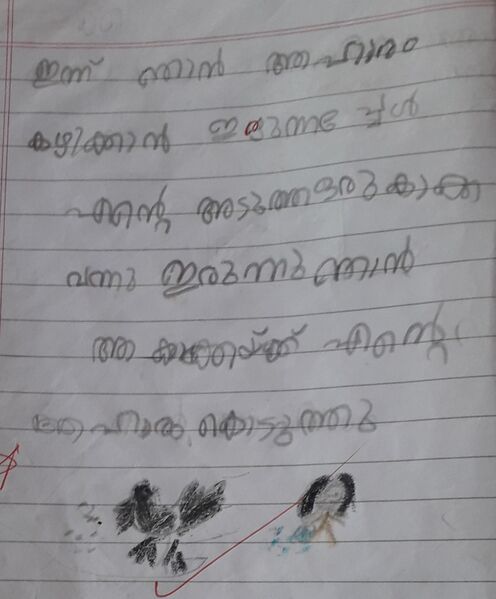 ഇന്ന് ഞാൻ ആഹാരം
കഴിക്കാൻ ഇരുന്നപ്പൾ
എന്റെ അടുത്തഒരു കാക്ക
വന്നു ഇരുന്നു ഞാൻ
ആ കാക്കയ്ക്ക് എന്റെ
ആഹാരം കൊടുത്തു